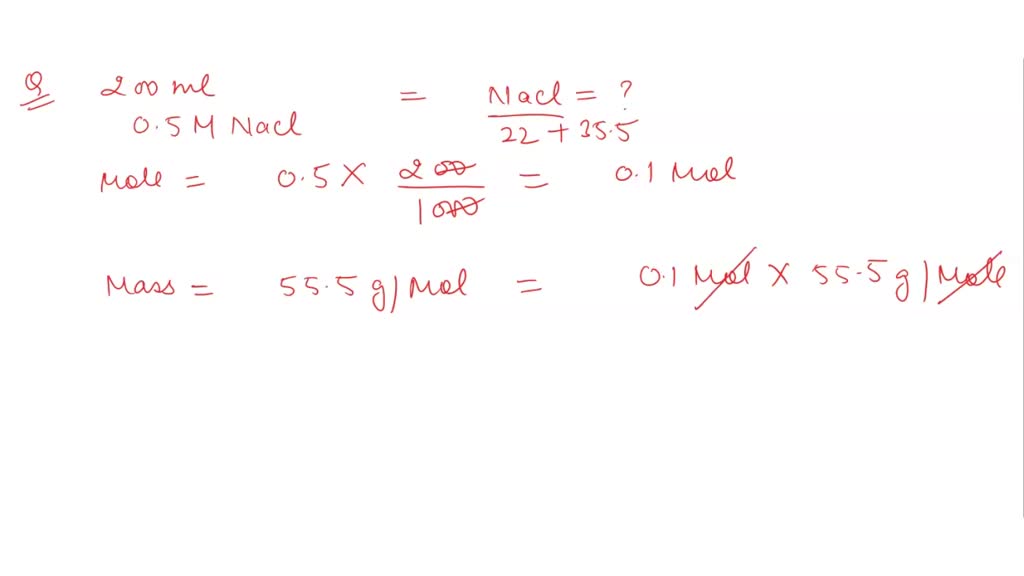 Q 200 ml = Nacl = ?
0.5 M Nacl 22 + 35.5
Mole = 0.5 X 200/1000 = 0.1 Mol
Mass = 55.5 g/Mol = 0.1 Mol X 55.5 g/Mole